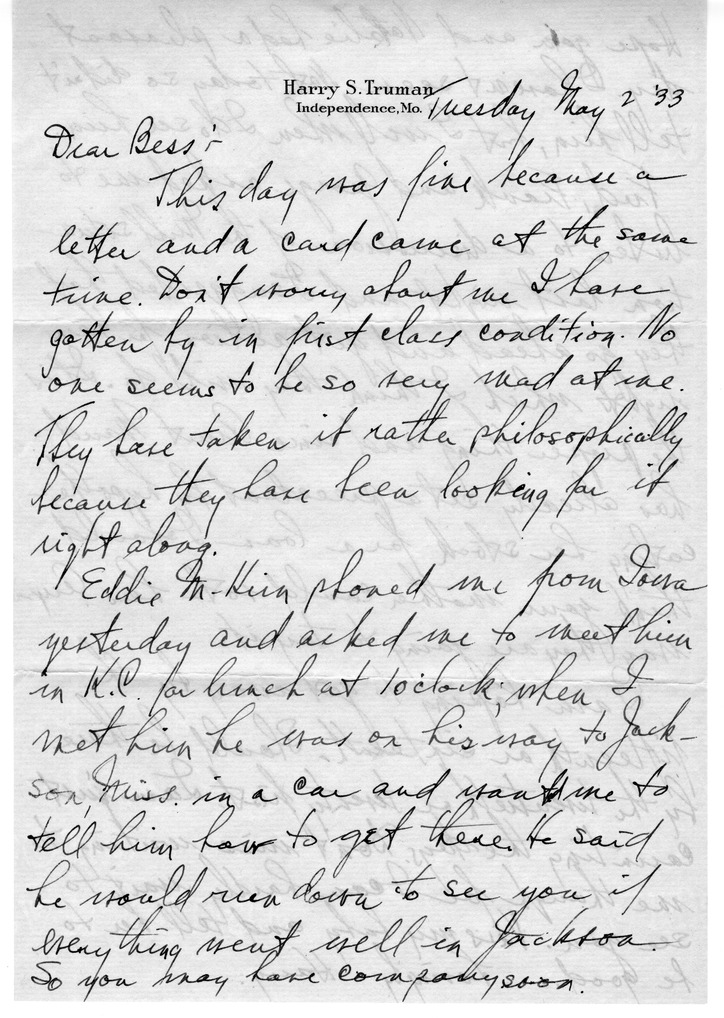 Harry S. Truman
Independence, Mo.
Tuesday May 2 '33
Dear Bess:-
This day was fine because a
letter and a card came at the same
time. Don't worry about me I have
gotten by in first class condition. No
one seems to be so very mad at me.
They have taken it rather philosophically
because they have been looking for it
right along.
Eddie McKim phoned me from Iowa
yesterday and asked me to meet him
in K.C. for lunch at 1 o'clock; when I
met him he was on his way to Jack-
son, Miss. in a car and wanted me to
tell him how to get there. He said
he would run down to see you if
everything went well in Jackson.
So you may have company soon.